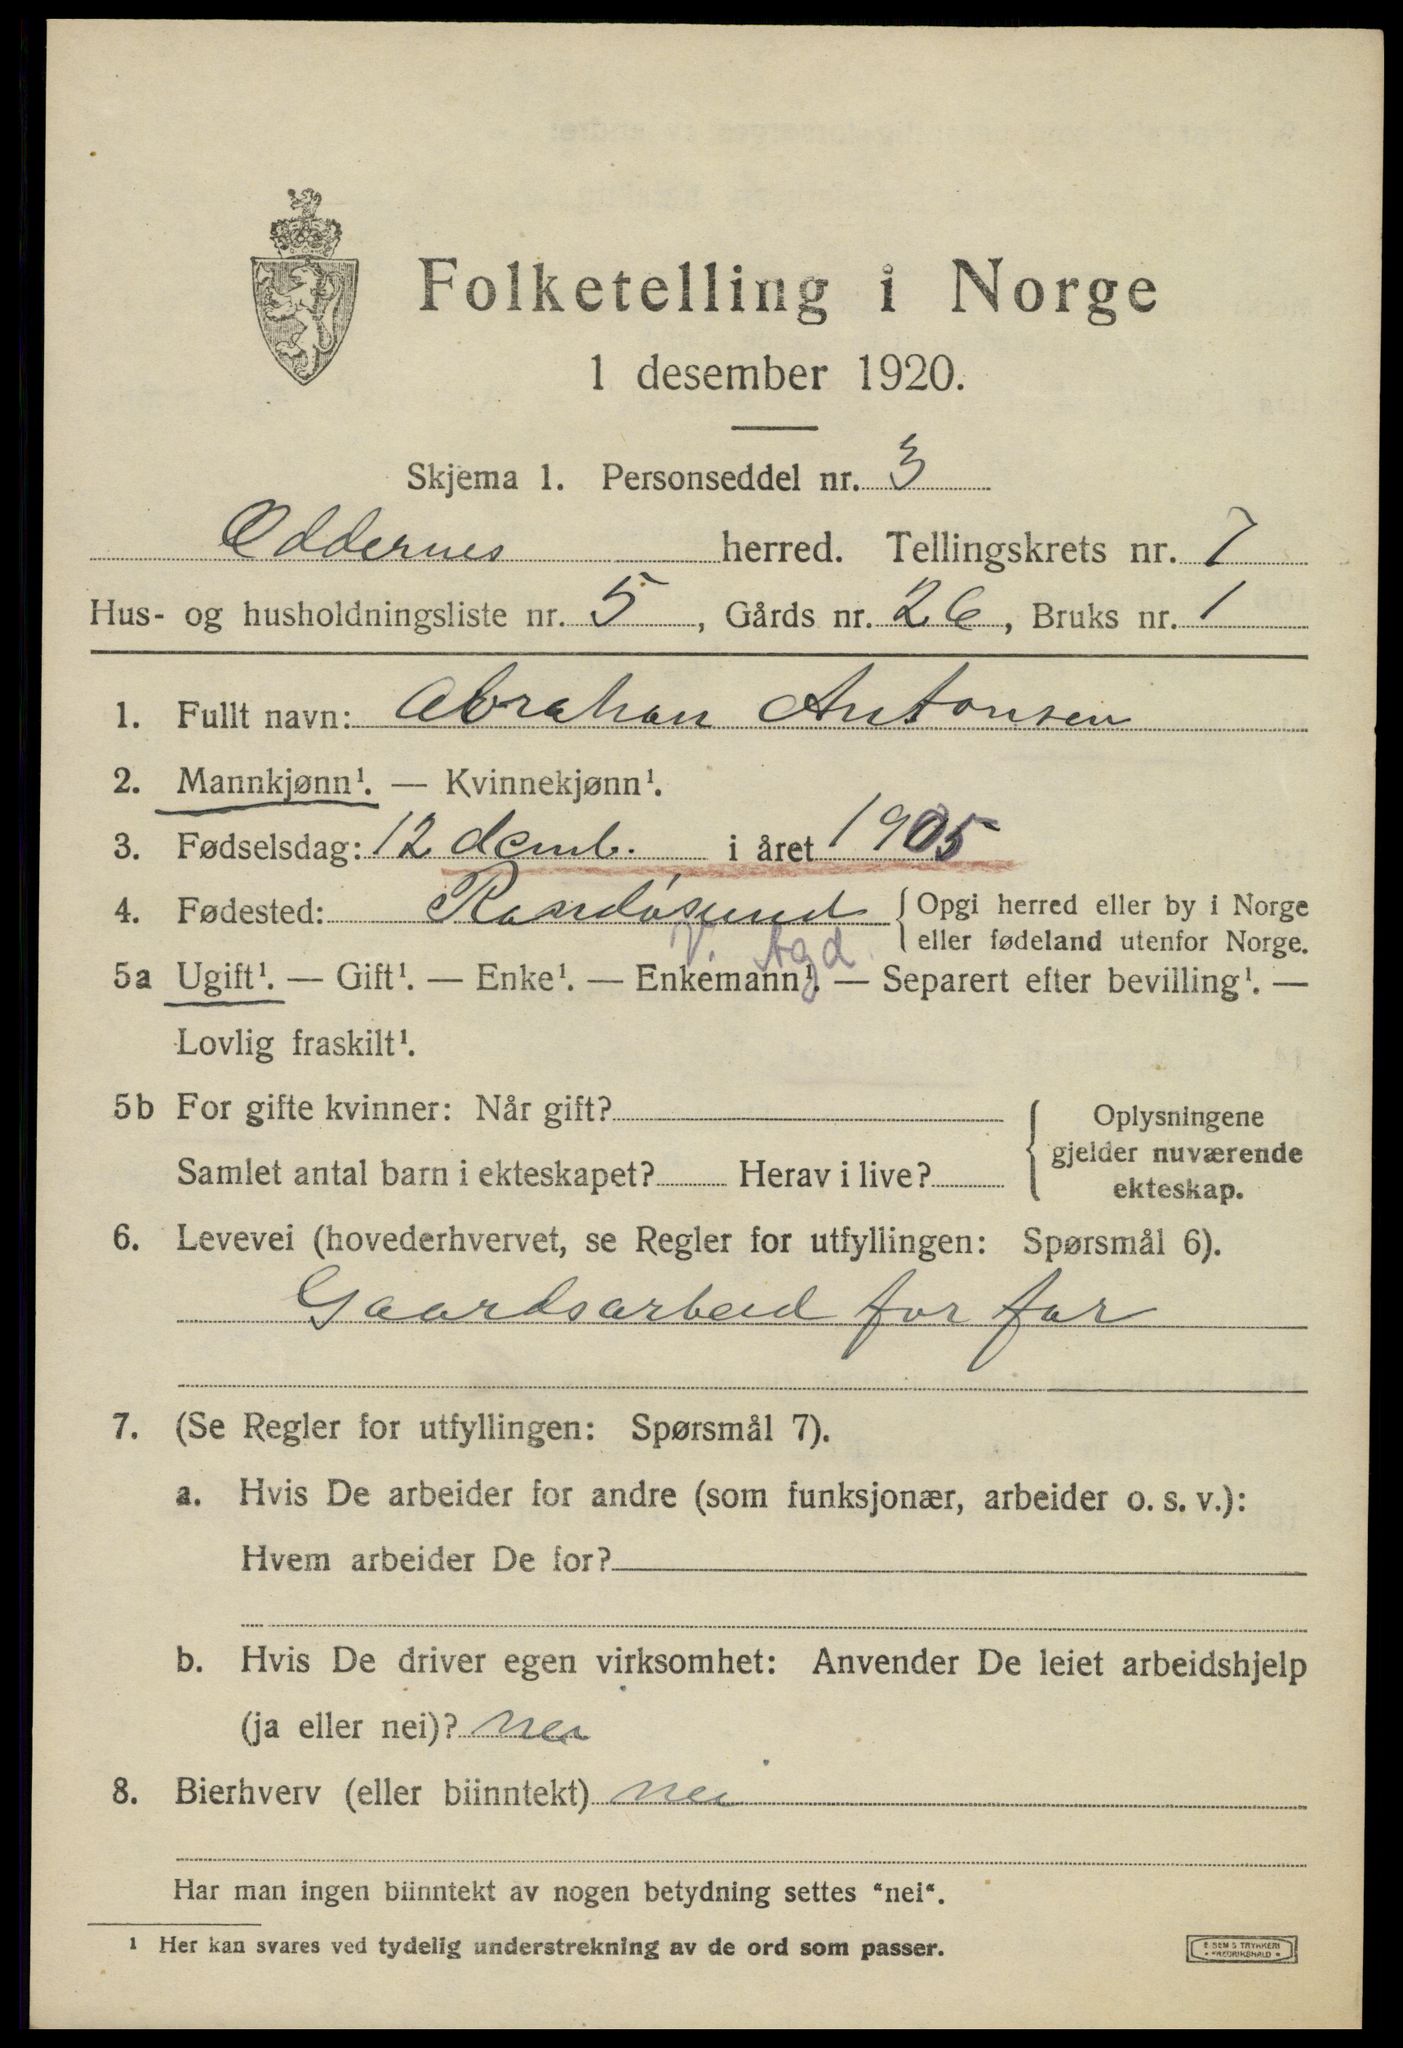 Folketelling i Norge
1 desember 1920.
Skjema 1. Personseddel nr. 3
Oddernes herred. Tellingskrets nr. 7
Hus- og husholdningsliste nr. 5, Gårds nr. 26, Bruks nr. 1
1. Fullt navn: Abrahan Antonsen
2. Mannkjønn¹. — Kvinnekjønn¹.
3. Fødselsdag: 12 demb. i året 1905
4. Fødested: Randøsund { Opgi herred eller by i Norge
eller fødeland utenfor Norge.
V. Agd.
5a Ugift¹. — Gift¹. — Enke¹. — Enkemann¹. — Separert efter bevilling¹. —
Lovlig fraskilt¹.
5b For gifte kvinner: Når gift?
Samlet antal barn i ekteskapet? Herav i live?
{ Oplysningene
gjelder nuværende
ekteskap.
6. Levevei (hovederhvervet, se Regler for utfyllingen: Spørsmål 6).
Gaardsarbeid for far
7. (Se Regler for utfyllingen: Spørsmål 7).
a. Hvis De arbeider for andre (som funksjonær, arbeider o. s. v.):
Hvem arbeider De for?
b. Hvis De driver egen virksomhet: Anvender De leiet arbeidshjelp
(ja eller nei)? nei
8. Bierhverv (eller biinntekt) nei
Har man ingen biinntekt av nogen betydning settes "nei".
¹ Her kan svares ved tydelig understrekning av de ord som passer.
TRYKKERI
FREDRIKSHALD